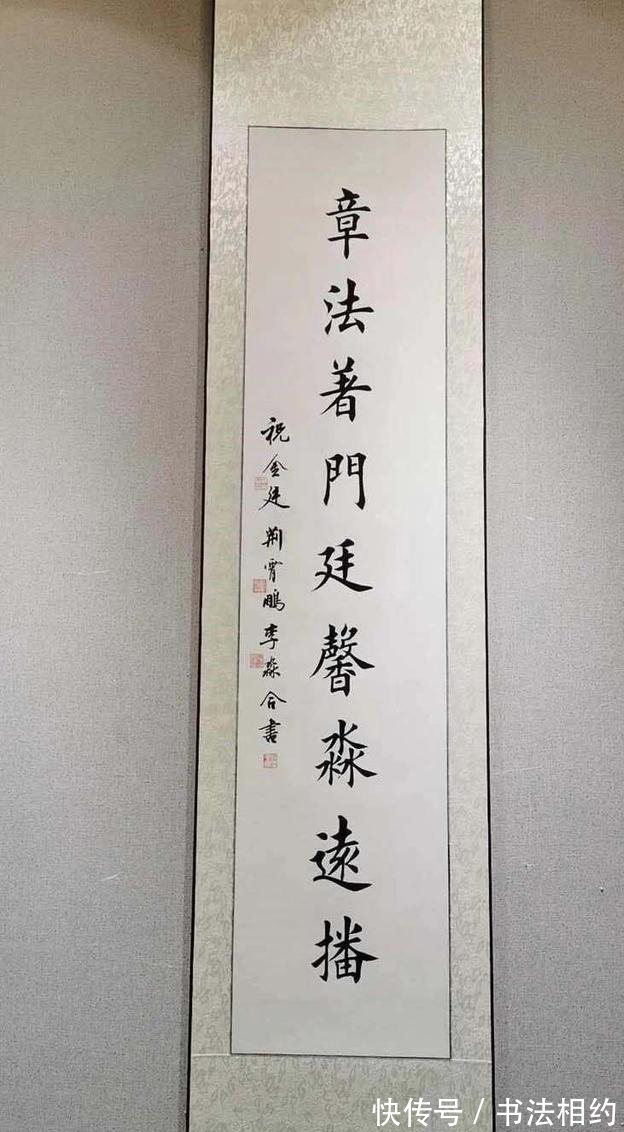 章法著門廷馨淼遠播
祝金廷荆霄鵬李淼合書
快传号 / 书法相约